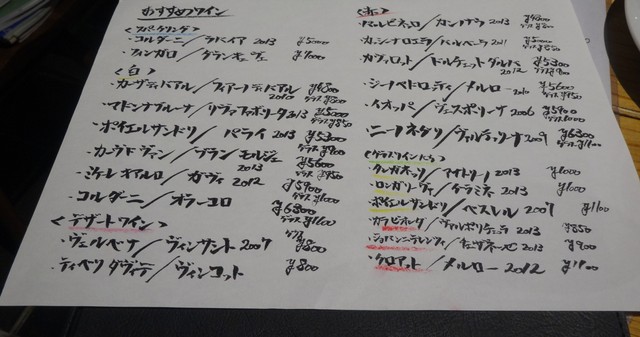 おすすめワイン
<スパークリング>
・コルダーニ/ラバイア 2013 ¥5000
・フィンガロ/グランキューブェ ¥7000
<白>
・カーザディバアル/フィアーノディバアル 2010 ¥4800 グラス ¥800
・マドンナブルーナ/リヴァファボリータ 2013 ¥5000 グラス ¥850
・ポイエルサンドリ/パライ 2013 ¥5300 グラス ¥900
・カーヴドヴァン/ブラン 2013 ¥5600 グラス ¥950
/ガヴィ 2012 ¥5900 グラス ¥1000
・コルダーニ/オラーコロ ¥6300 グラス ¥1100
<デザートワイン>
・ヴェルベーナ/ヴィンサント 2007 グラス ¥800
・ティベリダヴィデ/ヴィンコット ¥800
<赤>
/カンナナラ 2013 ¥4800
/バルベーラ 2011 ¥5000 グラス ¥850
・カヴァロット/ドルチェットダルバ 2012 ¥5300 グラス ¥900
・ジーナペドロッティ/メルロー 2010 ¥5600 グラス ¥950
・イオッパ/ヴェスポリーナ 2006 ¥5900 グラス ¥1000
・ニーノネグリ/ヴァルテッリーナ 2009 ¥6300 グラス ¥1100
<グラスワインたち>
2013 ¥1000
・ロンガリーヴァ/ゲラミネ 2013 ¥1000
・ポイエルサンドリ/ベスレル 2007 ¥1100
/ヴァルポリチェラ 2013 ¥850
・ジョバンニテレンツィ/チェザネーゼ 2013 ¥900
・クロアット/メルロー 2012